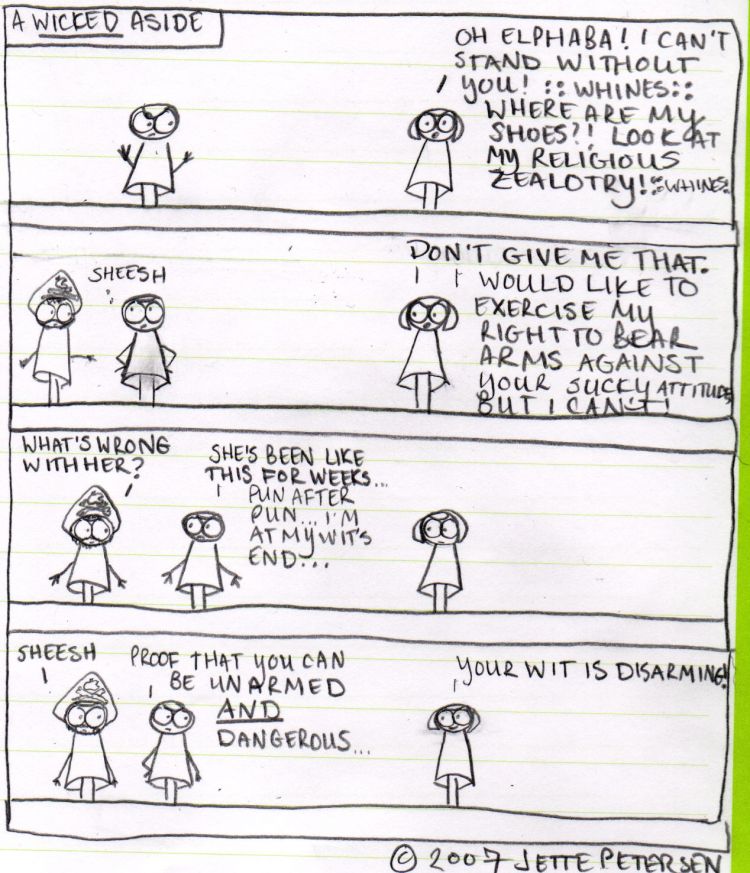 A WICKED ASIDE
OH ELPHABA! I CAN'T
STAND WITHOUT
YOU! ::WHINES::
WHERE ARE MY
SHOES?! LOOK AT
MY RELIGIOUS
ZEALOTRY! ::WHINES::
SHEESH
DON'T GIVE ME THAT.
I WOULD LIKE TO
EXERCISE MY
RIGHT TO BEAR
ARMS AGAINST
YOUR SUCKY ATTITUDE
BUT I CAN'T!
WHAT'S WRONG
WITH HER?
SHE'S BEEN LIKE
THIS FOR WEEKS...
PUN AFTER
PUN... I'M
AT MY WIT'S
END...
SHEESH
PROOF THAT YOU CAN
BE UNARMED
AND
DANGEROUS...
YOUR WIT IS DISARMING!
© 2007 JETTE PETERSEN